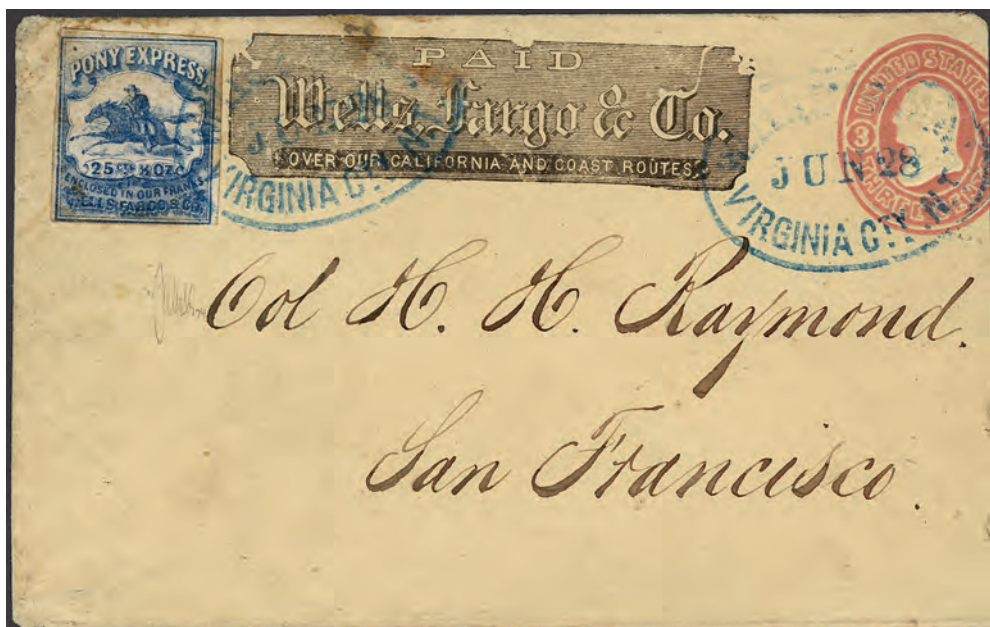 PONY EXPRESS.
25 CTS ½ OZ
ENCLOSED IN OUR FRANKS
WELLS, FARGO & CO.
PAID
Wells Fargo & Co.
OVER OUR CALIFORNIA AND COAST ROUTES.
VIRGINIA CTY, N.T
UNITED STATES
3
THREE
JUN 28
VIRGINIA CTY, N.T
Col H. H. Raymond.
San Francisco.